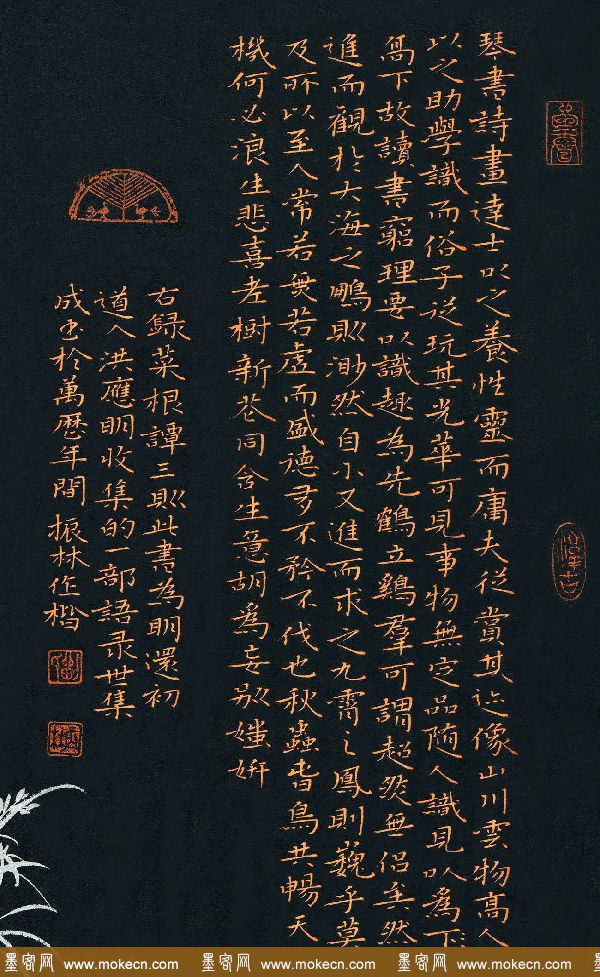 琴書詩畫達士以之養性靈而庸夫従賞其迹像山川雲物高人
以之助學識而俗子従玩其光華可見事物無定品随人識見以爲下
高下故讀書窮理要以識趣為先鶴立鷄羣可謂超然無侶矣然
進而觀於大海之鵬則渺然自小又進而求之九霄之鳳則巍乎莫
及所以至人常若無若虛而盛德多不矜不伐也秋蟲春鳥共暢天
機何必浪生悲喜老樹新花同含生意胡爲妄別媸妍
右録菜根譚三則此書為明還初
道人洪應明收集的一部語录世集
成书於萬歷年間 振林作楷
墨客网 www.mokecn.com 墨客网 www.mokecn.com 墨客网 www.mokecn.com 墨客网 www.mokecn.com